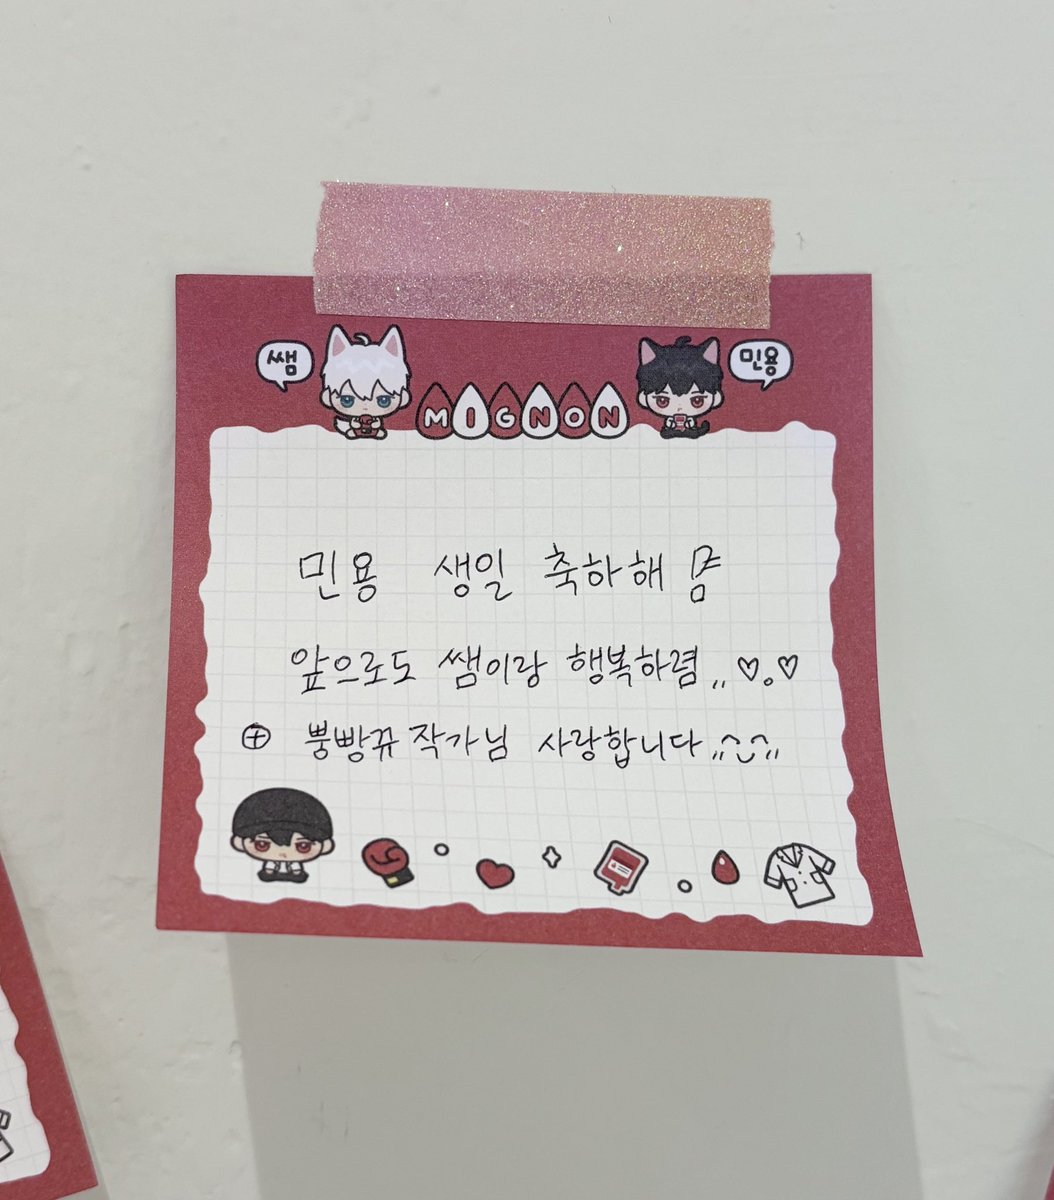 쌤
MIGNON
민용
민용 생일 축하해
앞으로도 쌤이랑 행복하렴,, ♡。♡
⊕ 뿡빵뀨 작가님 사랑합니다,,